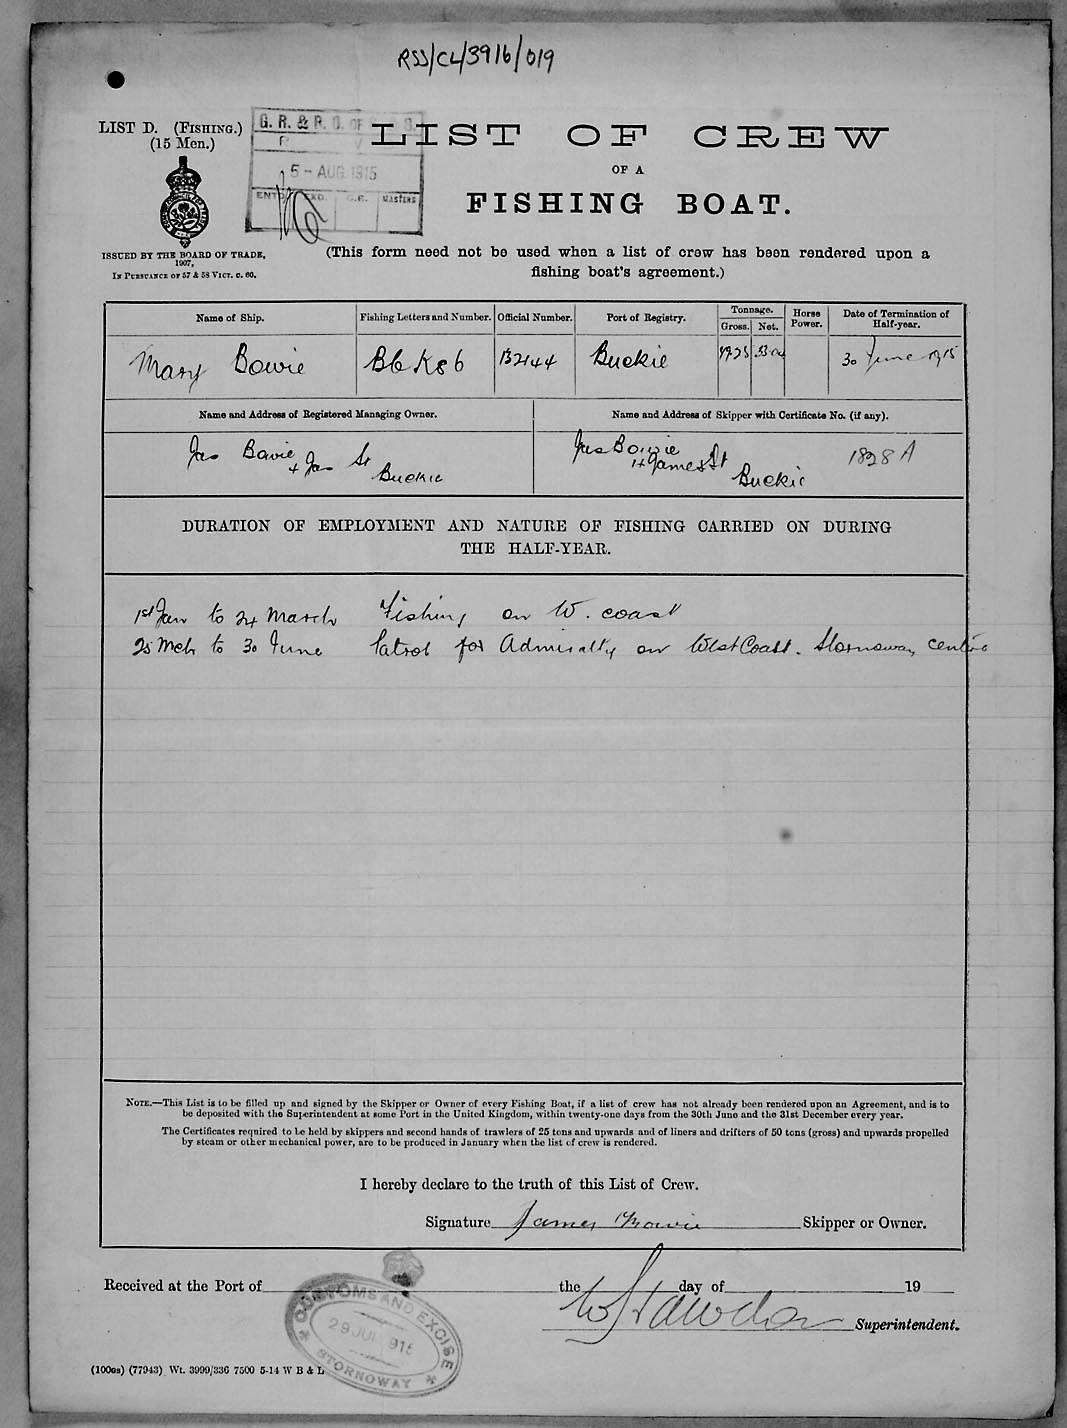 RSS/CL/3916/019
LIST D. (FISHING.)
(15 Men.)
G. R. & R. O. OF
5 - AUG. 1915
EXD. MASTERS
LIST OF CREW
OF A
FISHING BOAT.
ISSUED BY THE BOARD OF TRADE,
1907,
IN PURSUANCE OF 57 & 58 VICT. C. 60.
(This form need not be used when a list of crew has been rendered upon a
fishing boat's agreement.)
Name of Ship. Fishing Letters and Number. Official Number. Port of Registry. Tonnage. Horse Power. Date of Termination of Half-year.
Gross. Net.
Mary Bowie Buckie 30 June 1915
Name and Address of Registered Managing Owner. Name and Address of Skipper with Certificate No. (if any).
Jas Bowie Jas Bowie 1828 A
4 Jas St 14 James St
Buckie Buckie
DURATION OF EMPLOYMENT AND NATURE OF FISHING CARRIED ON DURING
THE HALF-YEAR.
1st Jan to 24 March Fishing on W. coast
25 Mch to 30 June Patrol for Admiralty on West Coast. Stornoway centre
NOTE.—This List is to be filled up and signed by the Skipper or Owner of every Fishing Boat, if a list of crew has not already been rendered upon an Agreement, and is to
be deposited with the Superintendent at some Port in the United Kingdom, within twenty-one days from the 30th June and the 31st December every year.
The Certificates required to be held by skippers and second hands of trawlers of 25 tons and upwards and of liners and drifters of 50 tons (gross) and upwards propelled
by steam or other mechanical power, are to be produced in January when the list of crew is rendered.
I hereby declare to the truth of this List of Crew.
Signature James Bowie Skipper or Owner.
Received at the Port of the day of 19
Superintendent.
CUSTOMS AND EXCISE
29 JUL 1915
STORNOWAY
(100es) (77943) Wt. 3999/336 7500 5-14 W B & L